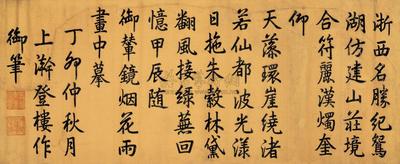 浙西名勝紀鴛
湖仿建山莊境
合符麗漢燭奎
仰
天藻環崖繞渚
若仙都波光漾
日拖朱轂林黛
翻風接綠蕪回
憶甲辰随
御輦鏡烟花雨
畫中摹
丁卯仲秋月
上澣登樓作
御筆